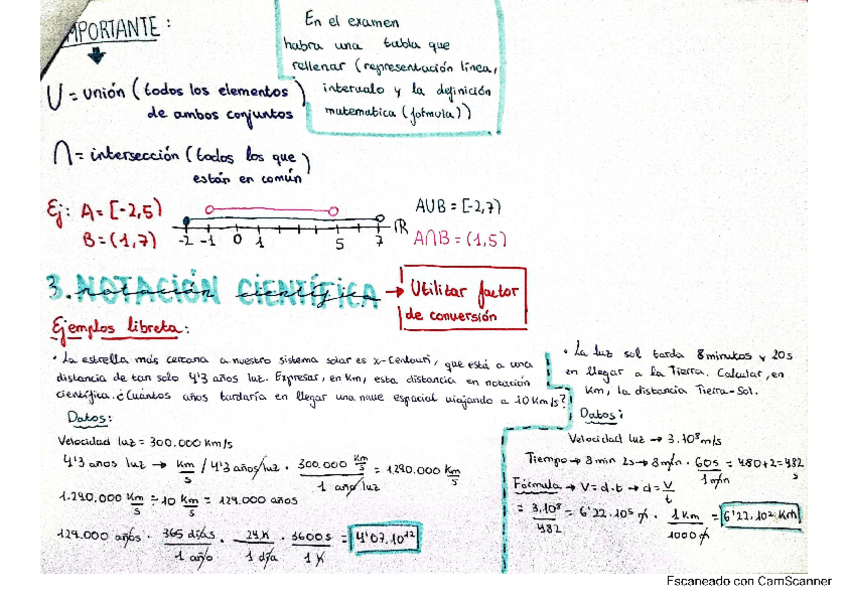 IMPORTANTE:
En el examen
habra una tabla que
rellenar (representación línea,
intervalo y la definición
matematica (formula))
U = unión (todos los elementos
de ambos conjuntos)
∩ = intersección (todos los que
están en común)
Ej: A = [-2,5)
B = (1,7)
-2 -1 0 1 5 7 IR
AUB = [-2,7)
A∩B = (1,5)
3. NOTACIÓN CIENTÍFICA → Utilizar factor
de conversión
Ejemplos libreta:
• La estrella más cercana a nuestro sistema solar es x-Centauri, que está a una
distancia de tan solo 4'3 años luz. Expresar, en Km, esta distancia en notación
científica. ¿Cuántos años tardaría en llegar una nave espacial viajando a 10 Km/s?
Datos:
Velocidad luz = 300.000 Km/s
4'3 años luz → Km/s / 4'3 años/luz · 300.000 Km/s / 1 año/luz = 1.290.000 Km/s
1.290.000 Km/s ÷ 10 Km/s = 129.000 años
129.000 años · 365 días / 1 año · 24h / 1 día · 3600s / 1h = 4'07.10¹²
• La luz sol tarda 8 minutos y 20s
en llegar a la Tierra. Calcular, en
Km, la distancia Tierra-Sol.
Datos:
Velocidad luz → 3.10⁸ m/s
Tiempo → 8 min 2s → 8 min · 60s / 1 min = 480+2 = 482 s
Fórmula → V = d.t → d = V/t
= 3.10⁸ / 482 = 6'22.10⁵ m · 1 Km / 1000 m = 6'22.10² Km
Escaneado con CamScanner